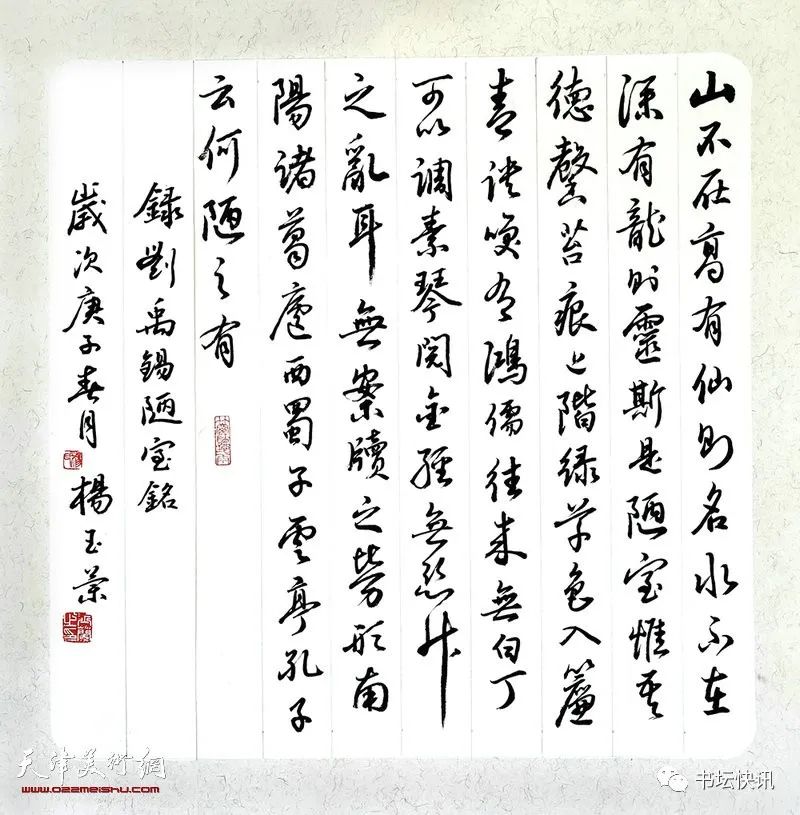 山不在高有仙則名水不在
深有龍則靈斯是陋室惟吾
德馨苔痕上階緑草色入簾
青談笑有鴻儒往来無白丁
可以調素琴閲金經無絲竹
之亂耳無案牘之勞形南
陽諸葛廬西蜀子雲亭孔子
云何陋之有
録劉禹錫陋室銘
歲次庚子春月 楊玉榮
天津美術網
www.022meishu.com
书坛快讯